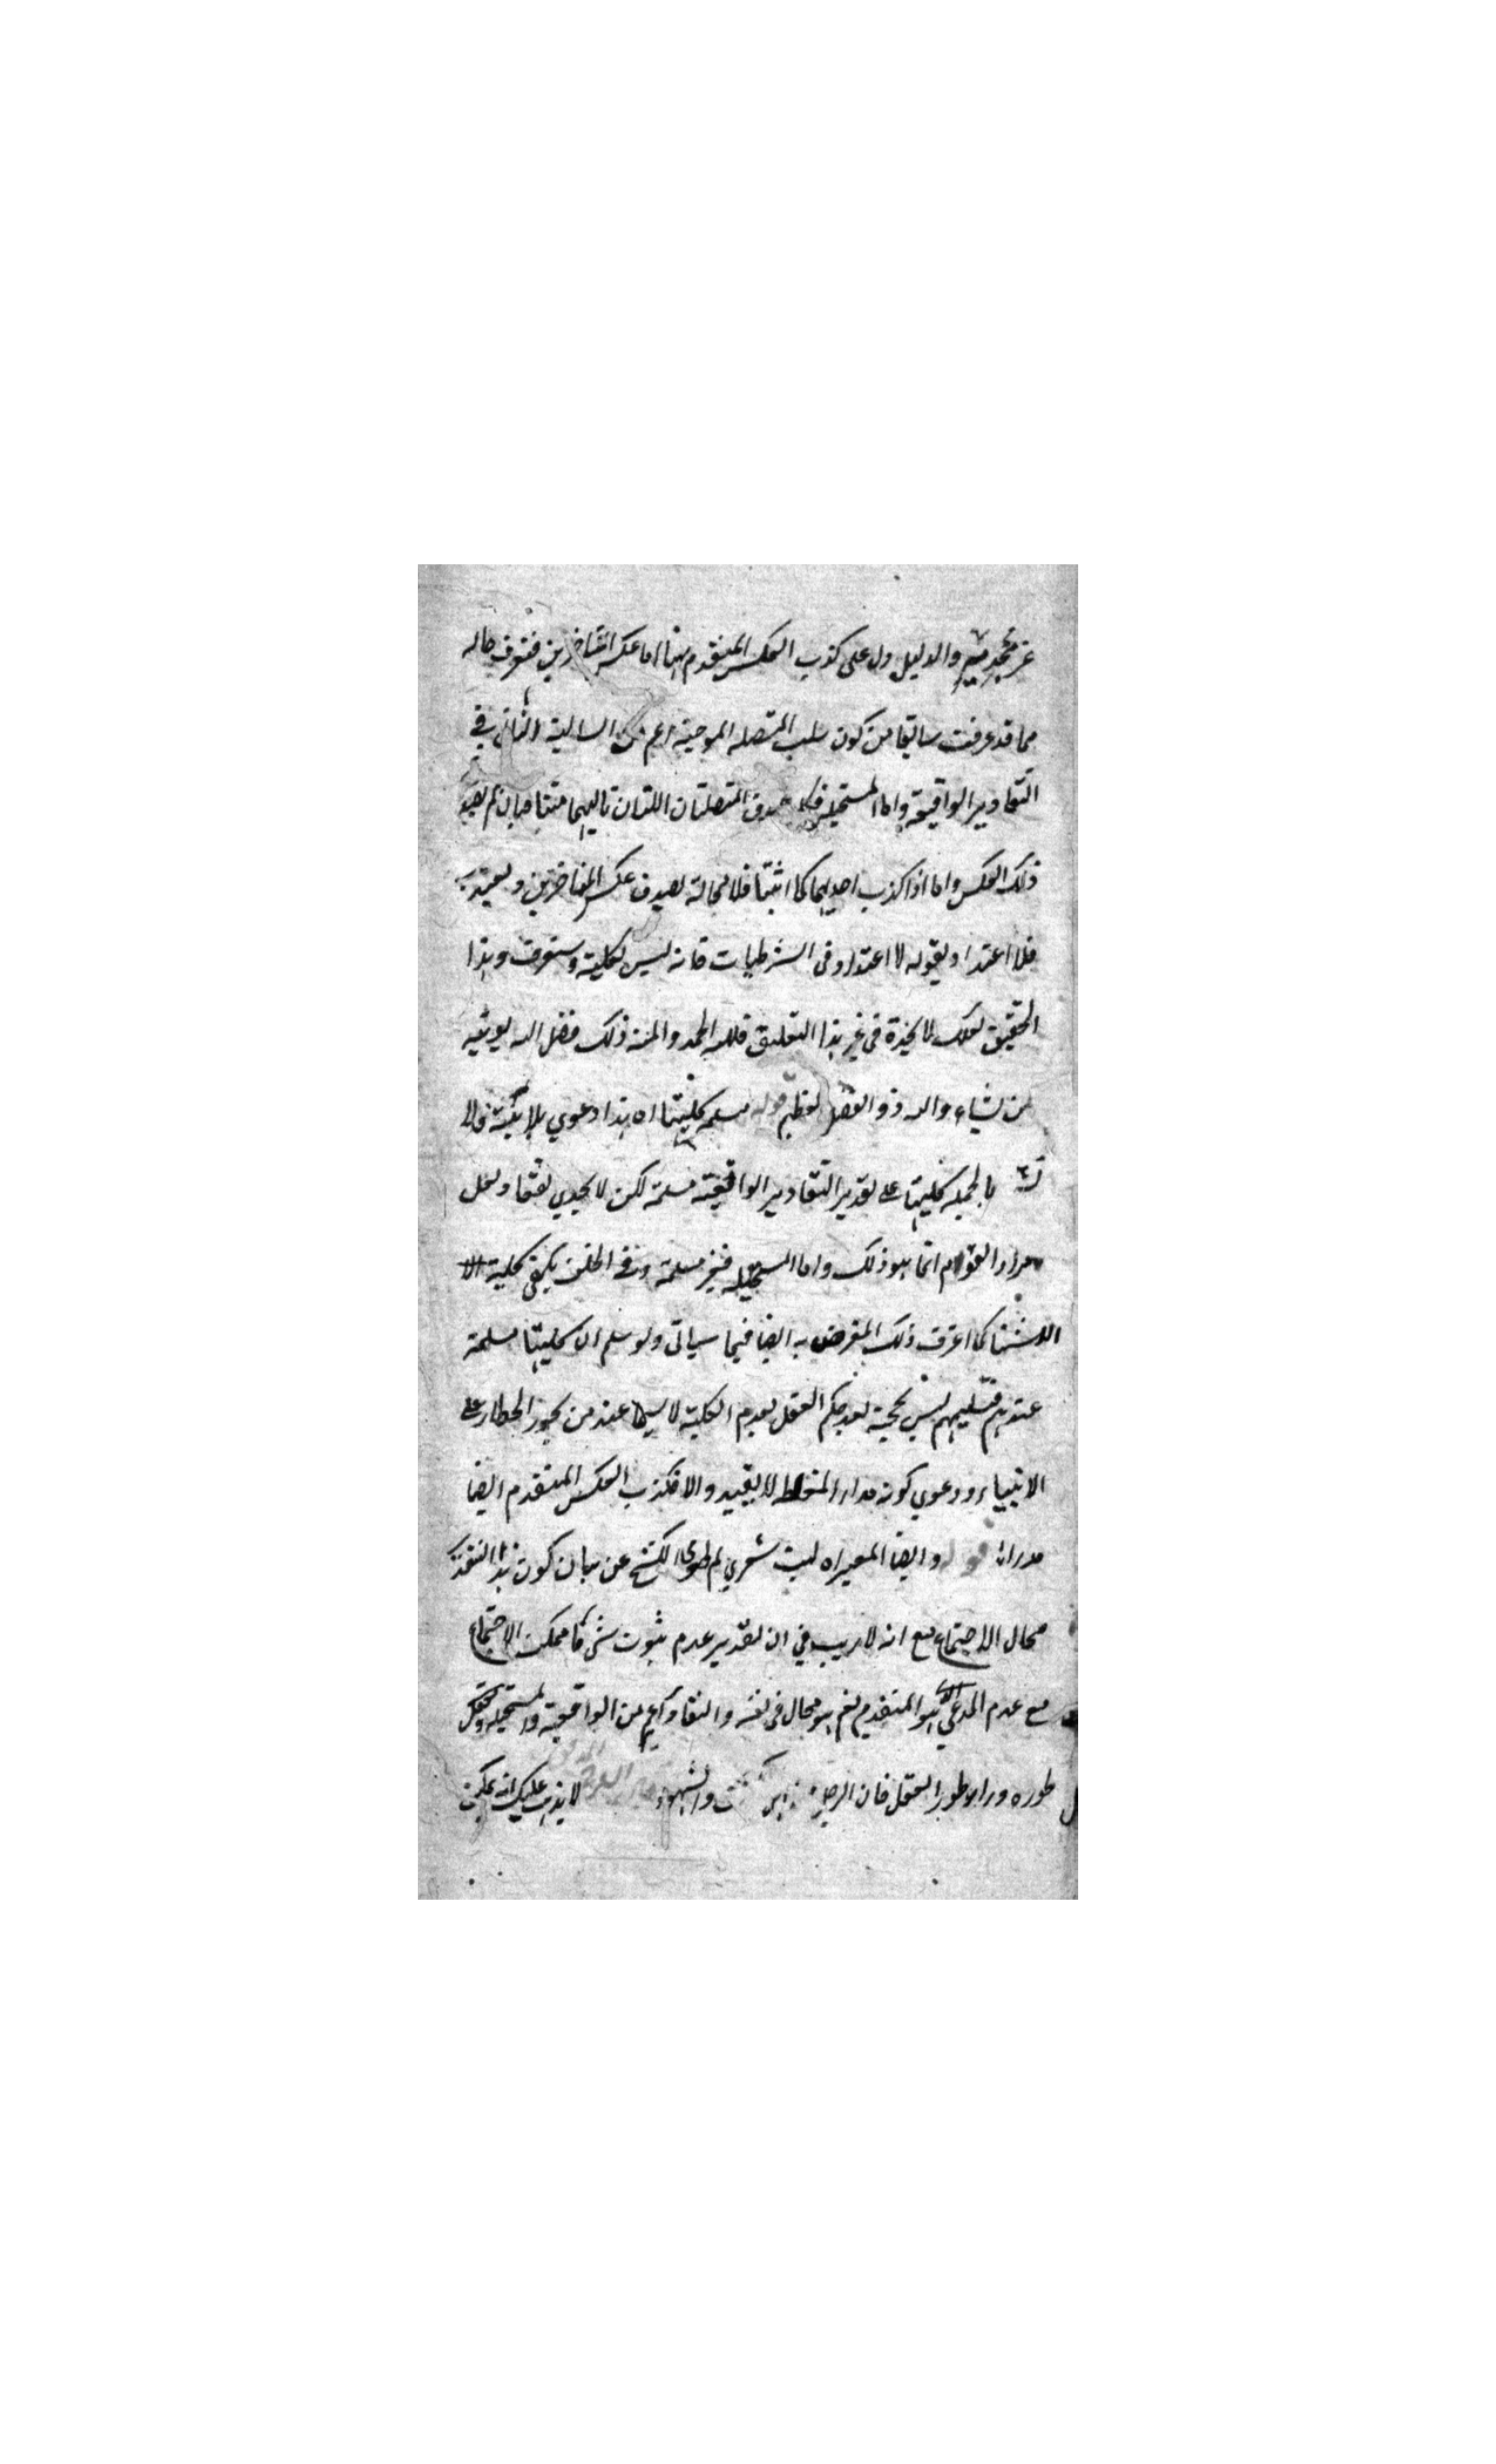 والدليل دل على كذب العكس المتقدم ههنا اما عكس المتاخرين فتعرف حاله
مما قد عرفت سابقا من كون سلب المتصله الموجبة اعم من السالبة التالى فى
التقادير الواقعية واما المستحيلة صدق المتصلتان اللتان تاليهما متناقضان لم
ذلك العكس واما اذا كذب احديهما كما اثبتنا فلا محالة يصدق عكس المتاخرين و
فلا اعتداد بقوله لا اعتداد فى الشرطيات فانه ليس بكلية وستعرف وهذا
التحقيق لعلك لا تجده فى غير هذا التعليق فلله الحمد والمنة ذلك فضل الله يوتيه
من يشاء والله ذو الفضل العظيم قوله مسلمة كليتها اه هذا دعوي بلا بينة
بالجملة كليتها على تقدير التقادير الواقعية مسلمة لكن لا يجدي نفعا ولعل
مراد القوم انما هو ذلك واما المستحيلة فغير مسلمة وفى الخلف يكفى كلية
كما اعترف ذلك المعترض به ايضا فيما سياتى ولو سلم ان كليتها مسلمة
عندهم فتسليمهم ليس بحجة بعد حكم العقل بعدم الكلية لا سيما عند من يجوز الخطاء على
الانبياء ودعوي كونه مدار المغالطة لا يفيد والا فكذب العكس المتقدم ايضا
مدارا قوله وايضا المعبر اه ليت شعري لم طوى الكشح عن بيان كون هذا التقدير
محال الاجتماع مع انه لا ريب فى ان تقدير عدم ثبوت شئ ما ممكن الاجتماع
مع عدم المدعى هو المتقدم نعم هو محال فى نفسه والتقادير اعم من الواقعية والمستحيلة
طوره وراء طور العقل فان لا يذهب عليك انه يمكن